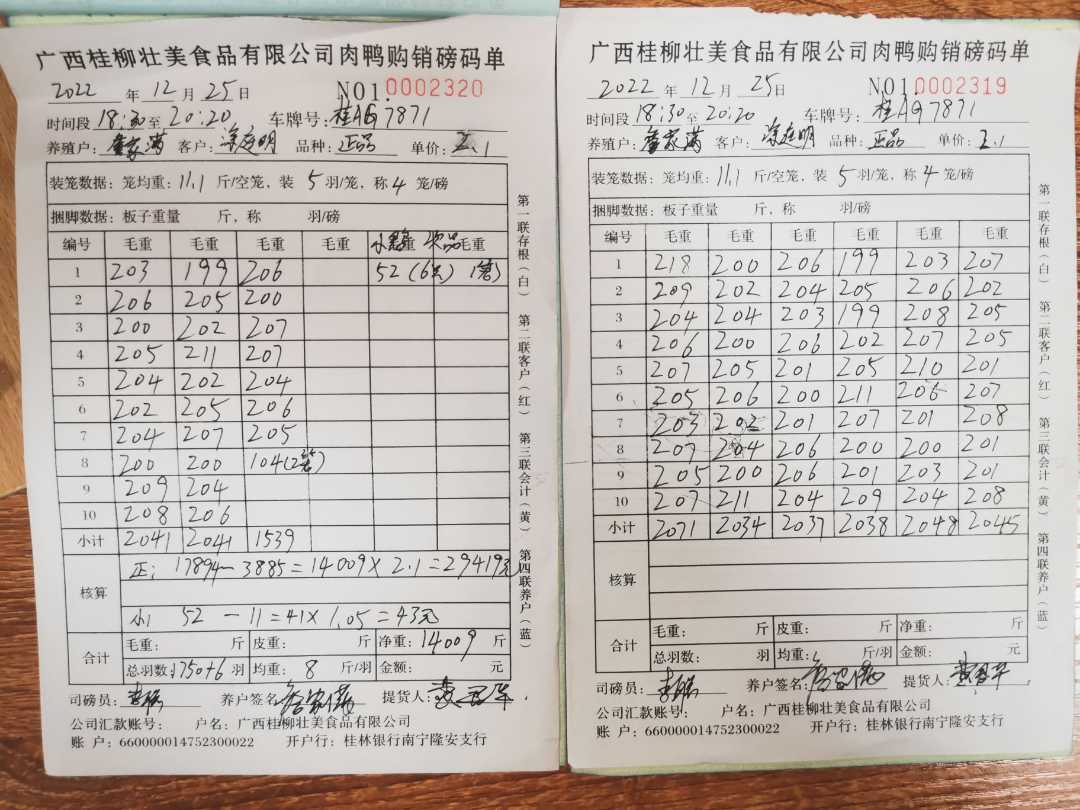 广西桂柳壮美食品有限公司肉鸭购销磅码单
2022 年 12 月 25 日 NO1. 0002320
时间段 18:30 至 20:20 车牌号: 桂AG7871
养殖户: 客户: 品种: 正品 单价: 2.1
装笼数据: 笼均重: 11.1 斤/空笼, 装 5 羽/笼, 称 4 笼/磅
捆脚数据: 板子重量 斤, 称 羽/磅
编号 毛重 毛重 毛重 毛重 毛重
1 203 199 206 52 (6只)
2 206 205 200
3 200 202 207
4 205 211 207
5 204 202 204
6 202 205 206
7 204 207 205
8 200 200 104
9 209 204
10 208 206
小计 2041 2041 1539
核算
正: 17894-3885=14009×2.1=29419元
小 52-11=41×1.05=43元
合计
毛重: 斤 皮重: 斤 净重: 14009 斤
总羽数: 1750+6 羽 均重: 8 斤/羽 金额: 元
司磅员: 养户签名: 提货人:
公司汇款账号: 户名: 广西桂柳壮美食品有限公司
账 户: 660000014752300022 开户行: 桂林银行南宁隆安支行
第一联存根(白) 第二联客户(红) 第三联会计(黄) 第四联养户(蓝)
广西桂柳壮美食品有限公司肉鸭购销磅码单
2022 年 12 月 25 日 NO1. 0002319
时间段 18:30 至 20:20 车牌号: 桂AG7871
养殖户: 客户: 品种: 正品 单价: 2.1
装笼数据: 笼均重: 11.1 斤/空笼, 装 5 羽/笼, 称 4 笼/磅
捆脚数据: 板子重量 斤, 称 羽/磅
编号 毛重 毛重 毛重 毛重 毛重 毛重
1 218 200 206 199 203 207
2 209 202 204 205 206 202
3 204 204 203 199 208 205
4 206 200 206 202 207 205
5 207 205 201 205 210 201
6 205 206 200 211 206 207
7 203 202 201 207 201 208
8 207 204 206 200 200 201
9 205 200 206 201 203 201
10 207 211 204 209 204 208
小计 2071 2034 2037 2038 2048 2045
核算
合计
毛重: 斤 皮重: 斤 净重: 斤
总羽数: 羽 均重: 斤/羽 金额: 元
司磅员: 养户签名: 提货人:
公司汇款账号: 户名: 广西桂柳壮美食品有限公司
账 户: 660000014752300022 开户行: 桂林银行南宁隆安支行
第一联存根(白) 第二联客户(红) 第三联会计(黄) 第四联养户(蓝)